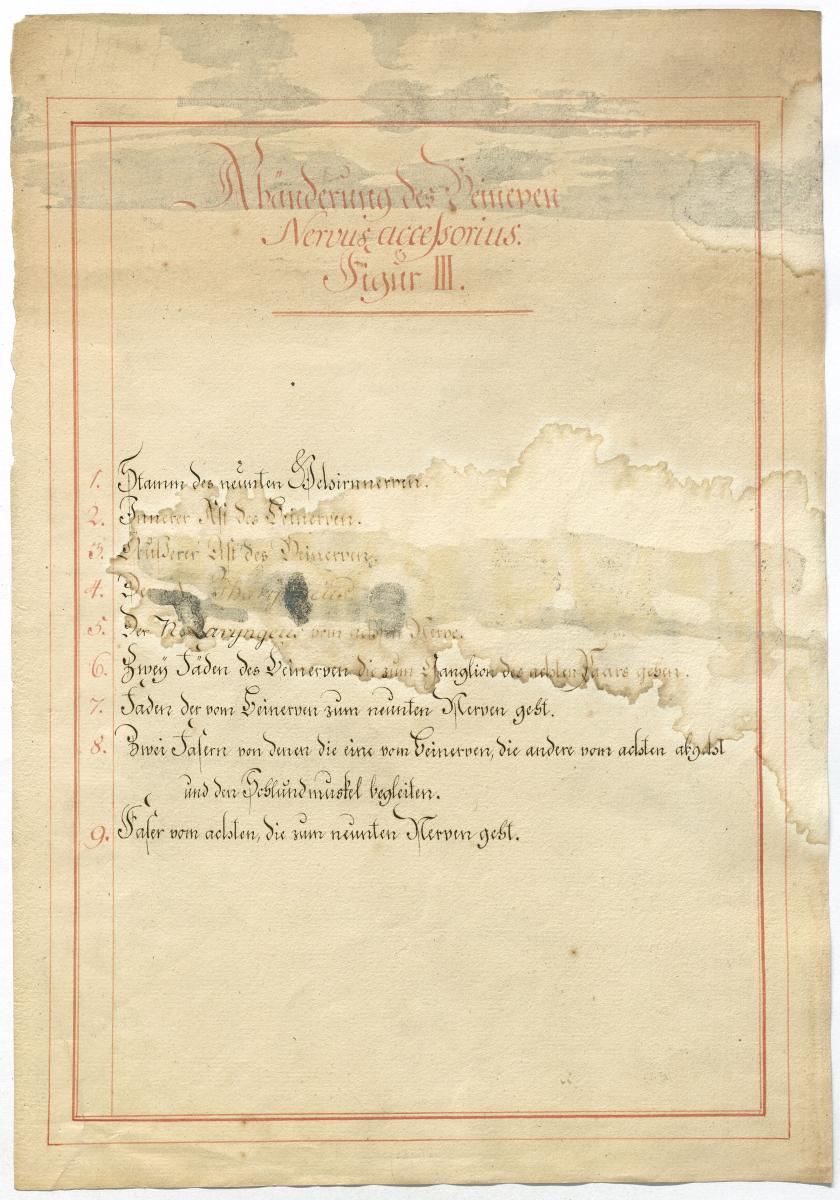 Abänderung des Beinerven
Nervus accessorius.
Figur III.
1. Stamm des neunten Gehirnnerven.
2. Innerer Ast des Beinerven.
3. Äußerer Ast des Beinerven.
4. Der
5. Der Laryngeus vom achten Nerve.
6. Zweÿ Fäden des Beinerven die zum Ganglion des achten Paars gehen.
7. Faden der vom Beinerven zum neunten Nerven geht.
8. Zwei Fasern von denen die eine vom Beinerven, die andere vom achten abgeht
und den Schlundmuskel begleiten.
9. Faser vom achten, die zum neunten Nerven geht.